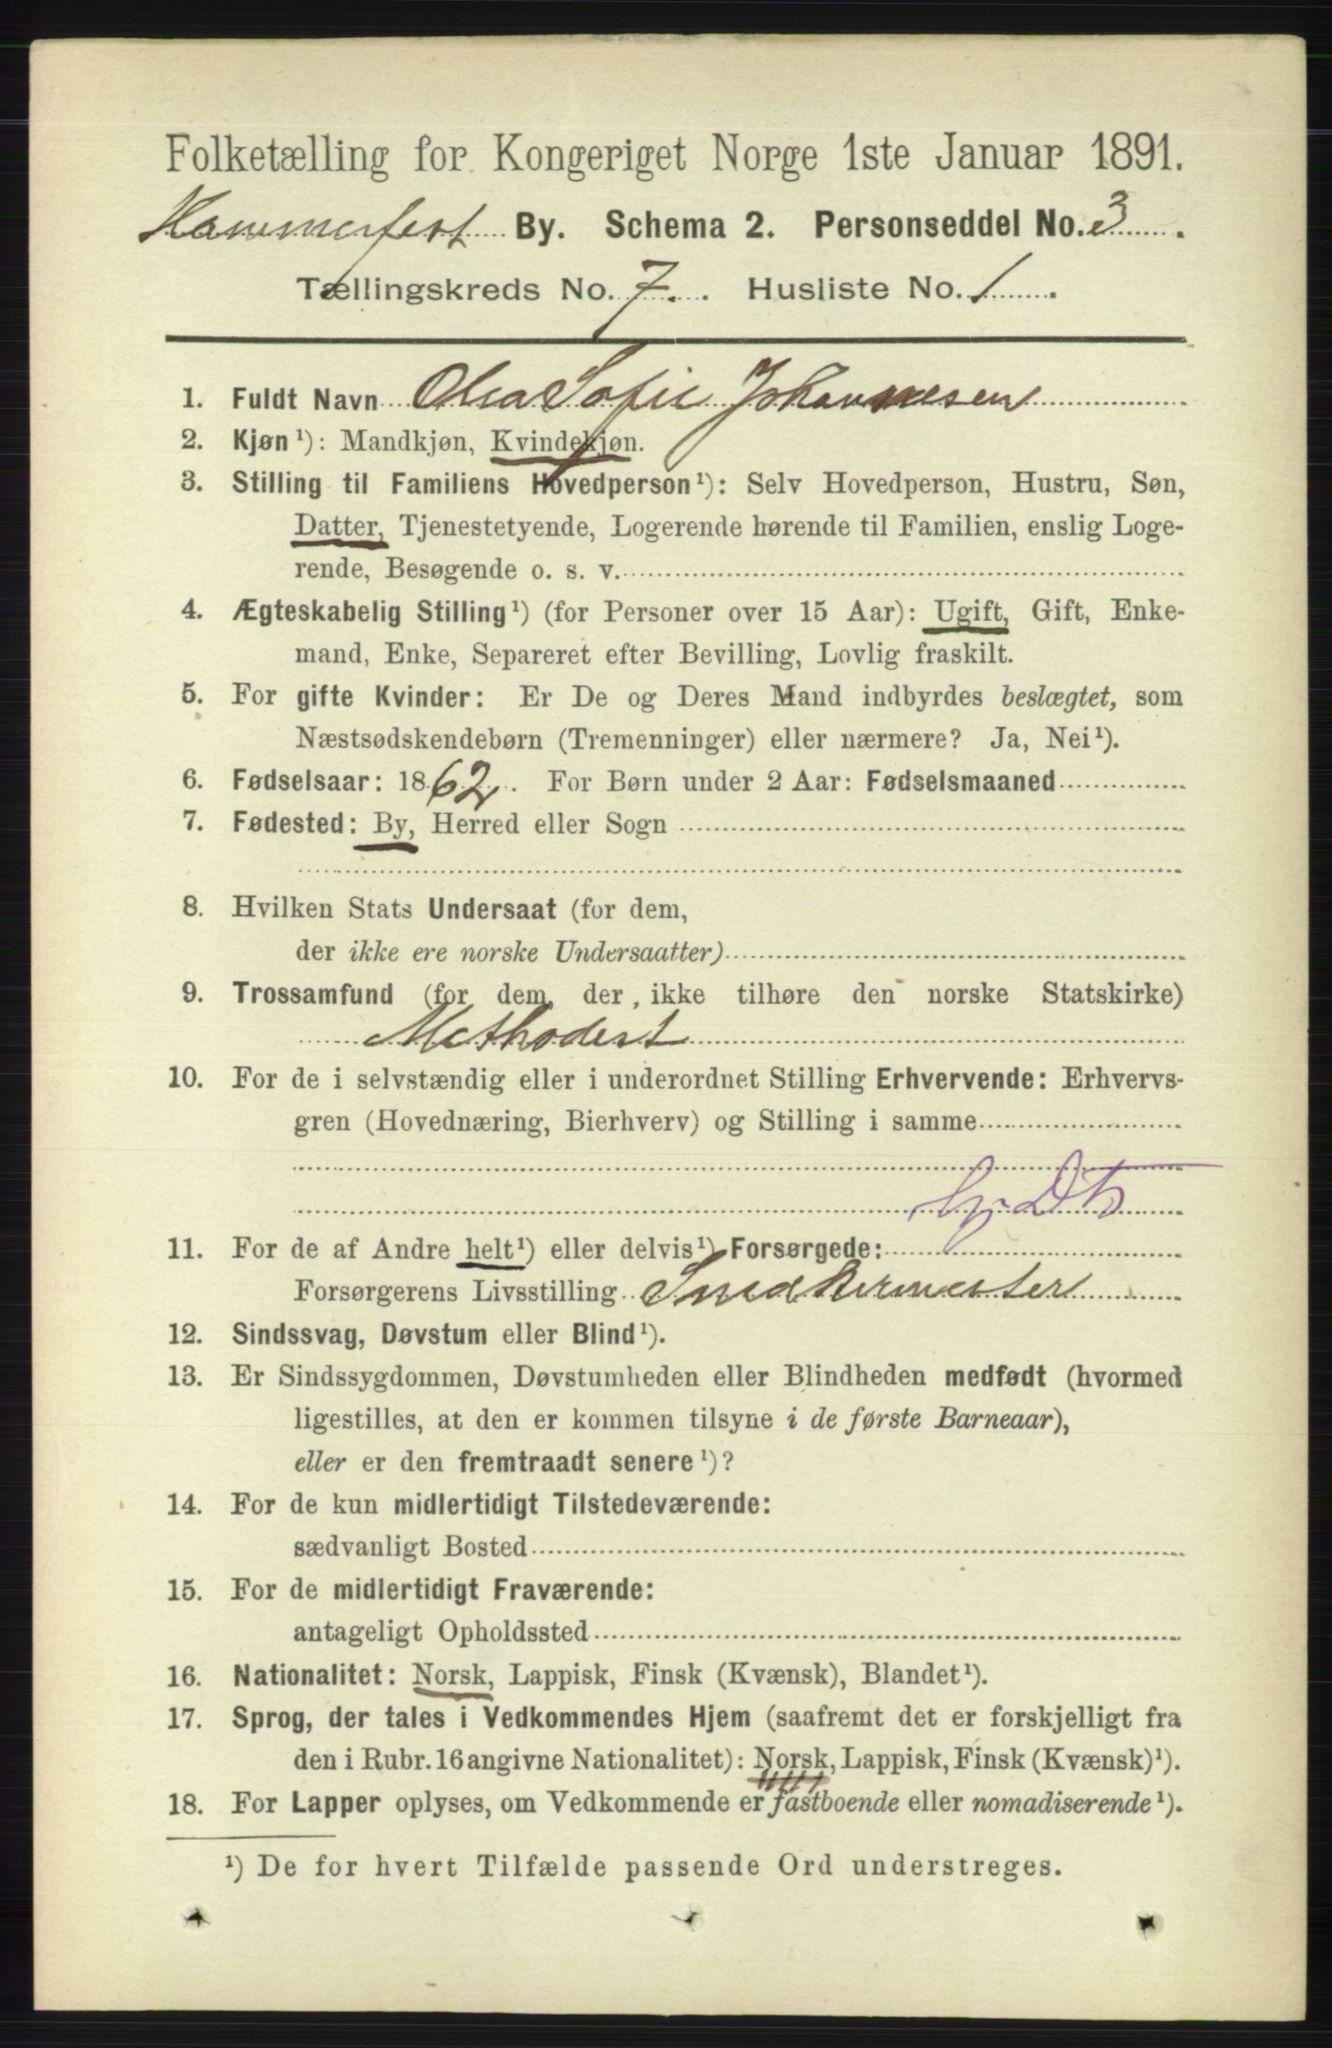 Folketælling for Kongeriget Norge 1ste Januar 1891.
Hammerfest By. Schema 2. Personseddel No. 3.
Tællingskreds No. 7. Husliste No. 1.
1. Fuldt Navn Olea Sofie Johannesen
2. Kjøn¹): Mandkjøn, Kvindekjøn.
3. Stilling til Familiens Hovedperson¹): Selv Hovedperson, Hustru, Søn,
Datter, Tjenestetyende, Logerende hørende til Familien, enslig Loge-
rende, Besøgende o. s. v.
4. Ægteskabelig Stilling¹) (for Personer over 15 Aar): Ugift, Gift, Enke-
mand, Enke, Separeret efter Bevilling, Lovlig fraskilt.
5. For gifte Kvinder: Er De og Deres Mand indbyrdes beslægtet, som
Næstsødskendebørn (Tremenninger) eller nærmere? Ja, Nei¹).
6. Fødselsaar: 1862. For Børn under 2 Aar: Fødselsmaaned
7. Fødested: By, Herred eller Sogn
8. Hvilken Stats Undersaat (for dem,
der ikke ere norske Undersaatter)
9. Trossamfund (for dem, der ikke tilhøre den norske Statskirke)
Methodist
10. For de i selvstændig eller i underordnet Stilling Erhvervende: Erhvervs-
gren (Hovednæring, Bierhverv) og Stilling i samme
11. For de af Andre helt¹) eller delvis¹) Forsørgede:
Forsørgerens Livsstilling Snedkermester
12. Sindssvag, Døvstum eller Blind¹).
13. Er Sindssygdommen, Døvstumheden eller Blindheden medfødt (hvormed
ligestilles, at den er kommen tilsyne i de første Barneaar),
eller er den fremtraadt senere¹)?
14. For de kun midlertidigt Tilstedeværende:
sædvanligt Bosted
15. For de midlertidigt Fraværende:
antageligt Opholdssted
16. Nationalitet: Norsk, Lappisk, Finsk (Kvænsk), Blandet¹).
17. Sprog, der tales i Vedkommendes Hjem (saafremt det er forskjelligt fra
den i Rubr. 16 angivne Nationalitet): Norsk, Lappisk, Finsk (Kvænsk)¹).
18. For Lapper oplyses, om Vedkommende er fastboende eller nomadiserende¹).
¹) De for hvert Tilfælde passende Ord understreges.